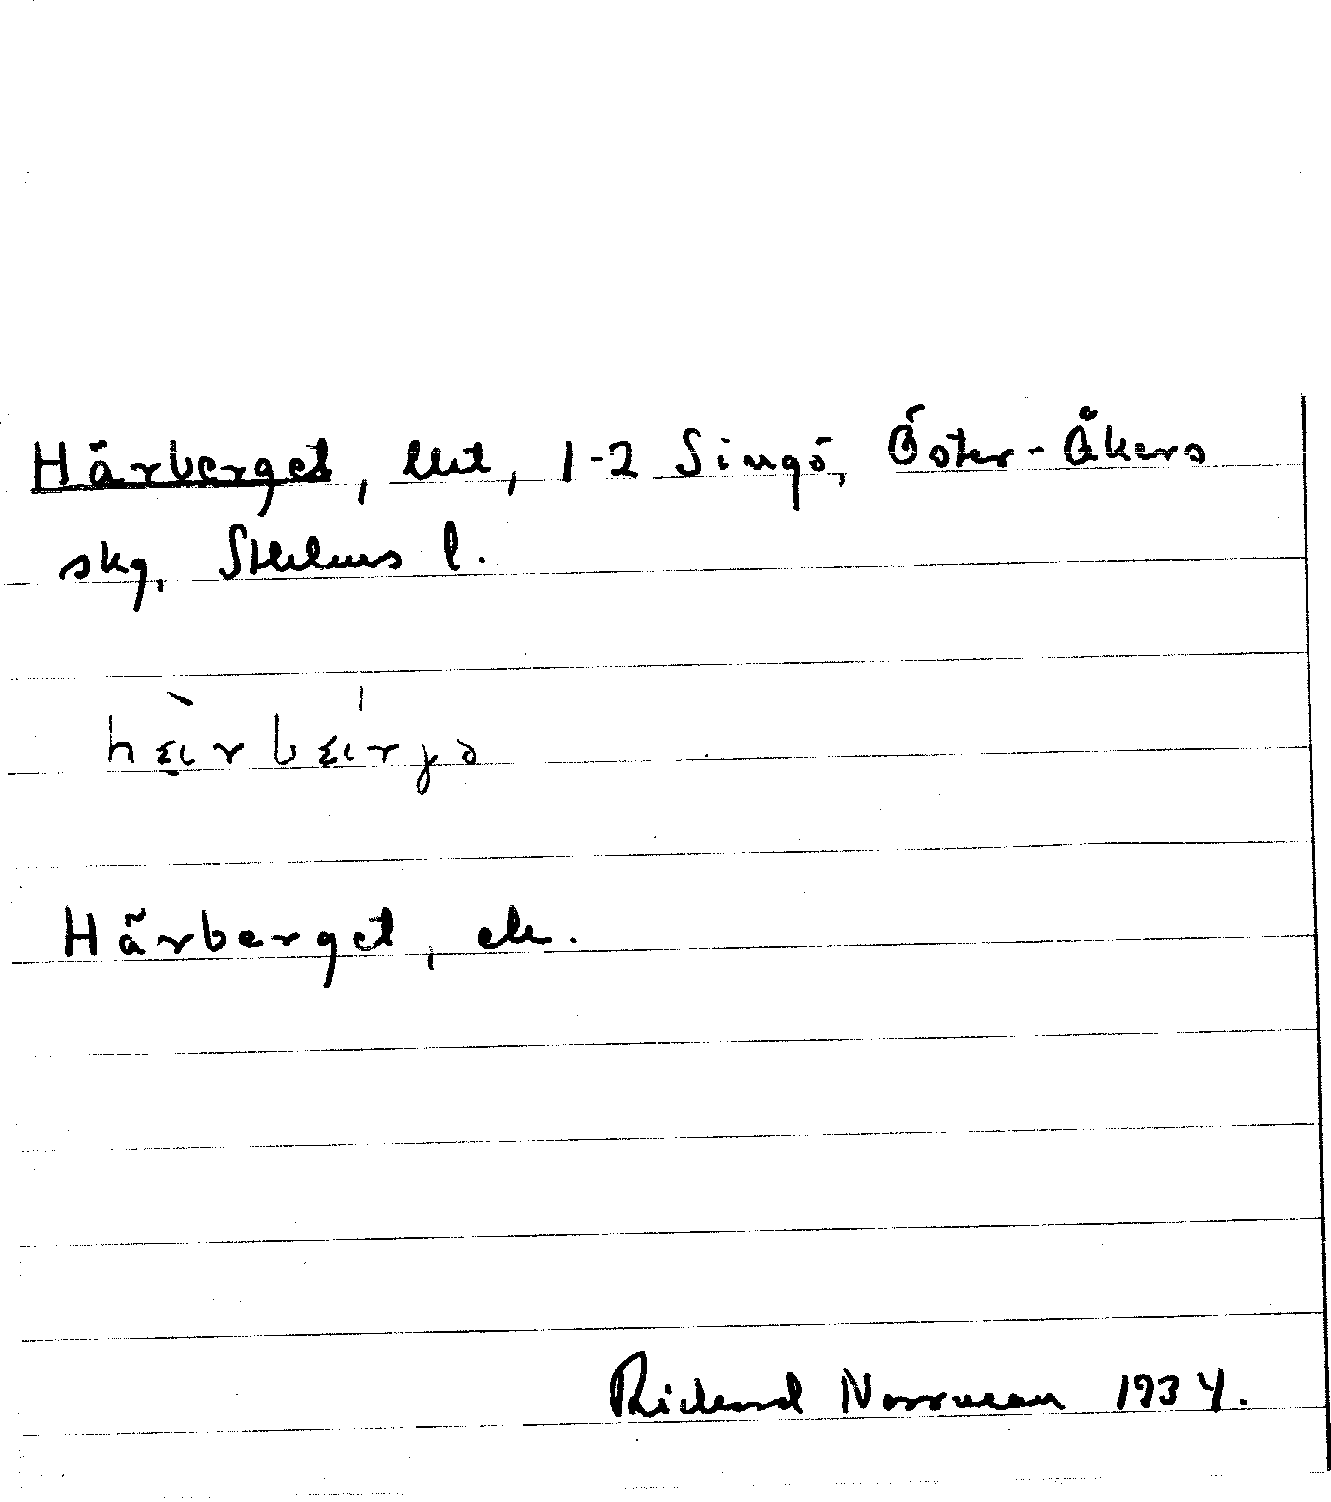 Härberget, 1-2 Singö, Öster-Åkers
skg, Sthlms l.
Härberget, ek.
Rickard Norrman 1934.